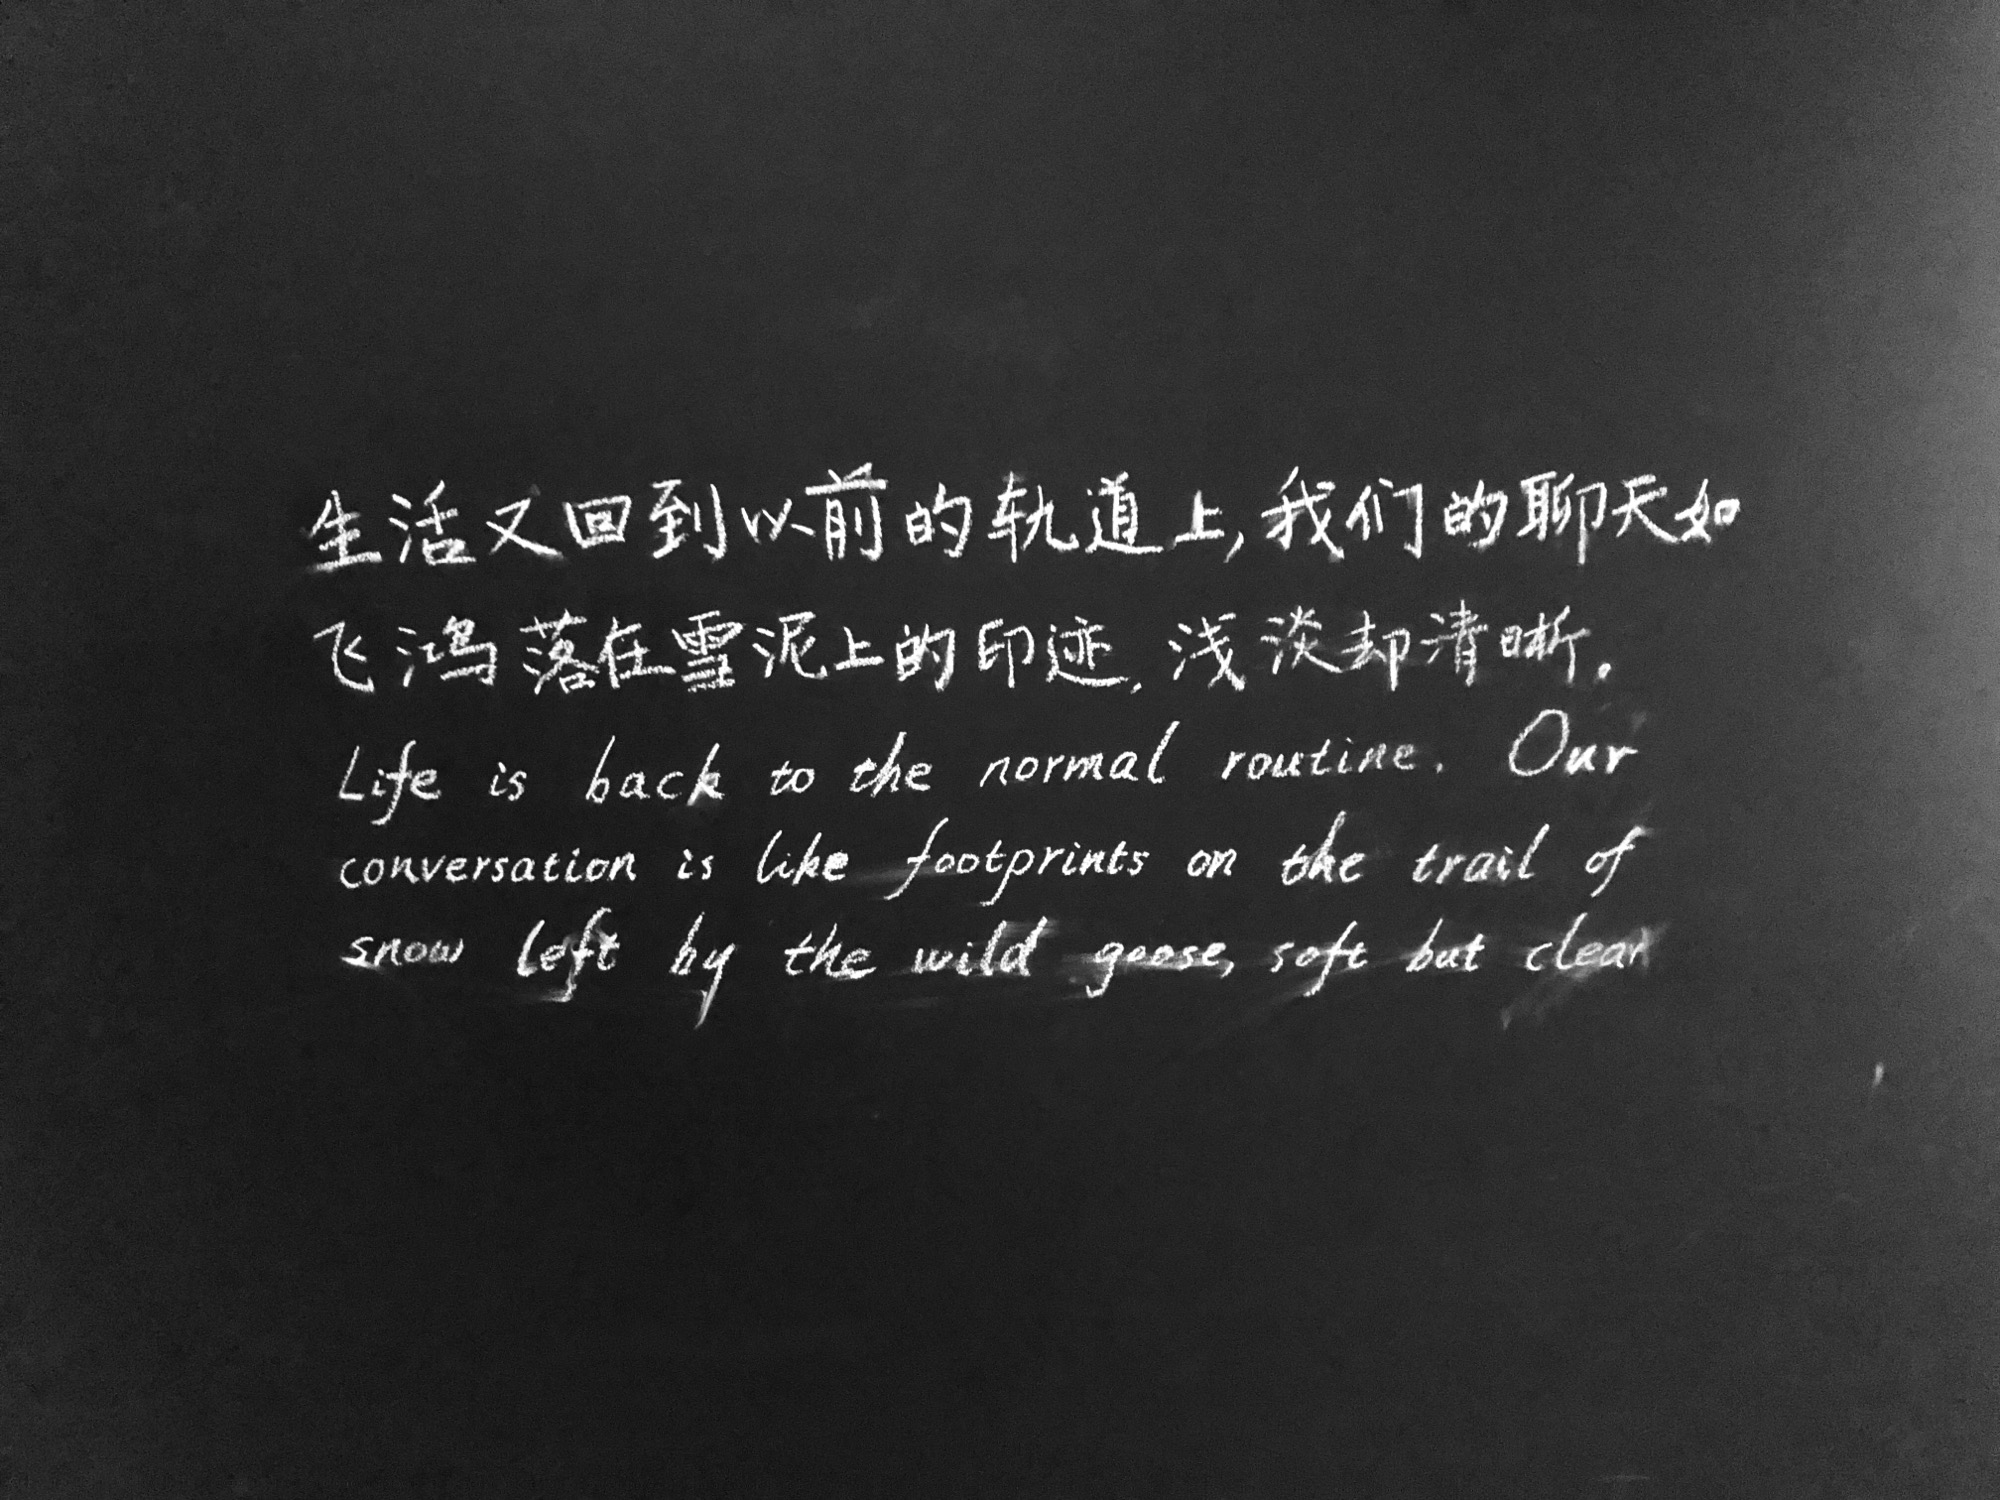 生活又回到以前的轨道上,我们的聊天如
飞鸿落在雪泥上的印迹,浅淡却清晰。
Life is back to the normal routine. Our
conversation is like footprints on the trail of
snow left by the wild goose, soft but clear